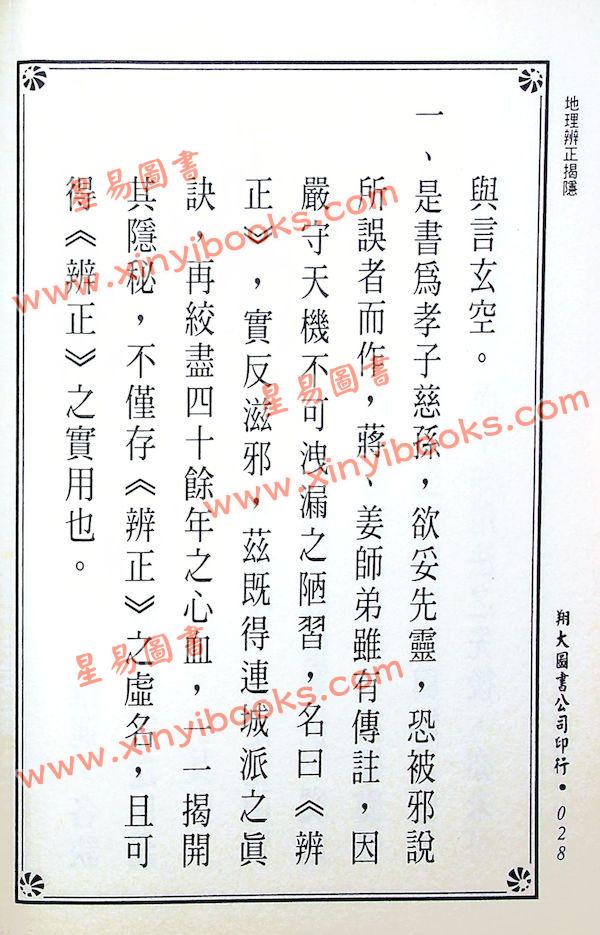 地理辨正揭隱
與言玄空。
一、是書爲孝子慈孫，欲妥先靈，恐被邪說
所誤者而作，蔣、姜師弟雖有傳註，因
嚴守天機不可洩漏之陋習，名曰《辨
正》，實反滋邪，茲既得連城派之眞
訣，再絞盡四十餘年之心血，一一揭開
其隱秘，不僅存《辨正》之虛名，且可
得《辨正》之實用也。
翔大圖書公司印行•028
星易圖書
www.xinyibooks.com
星易圖書
www.xinyibooks.com
星易圖書
www.xinyibooks.com